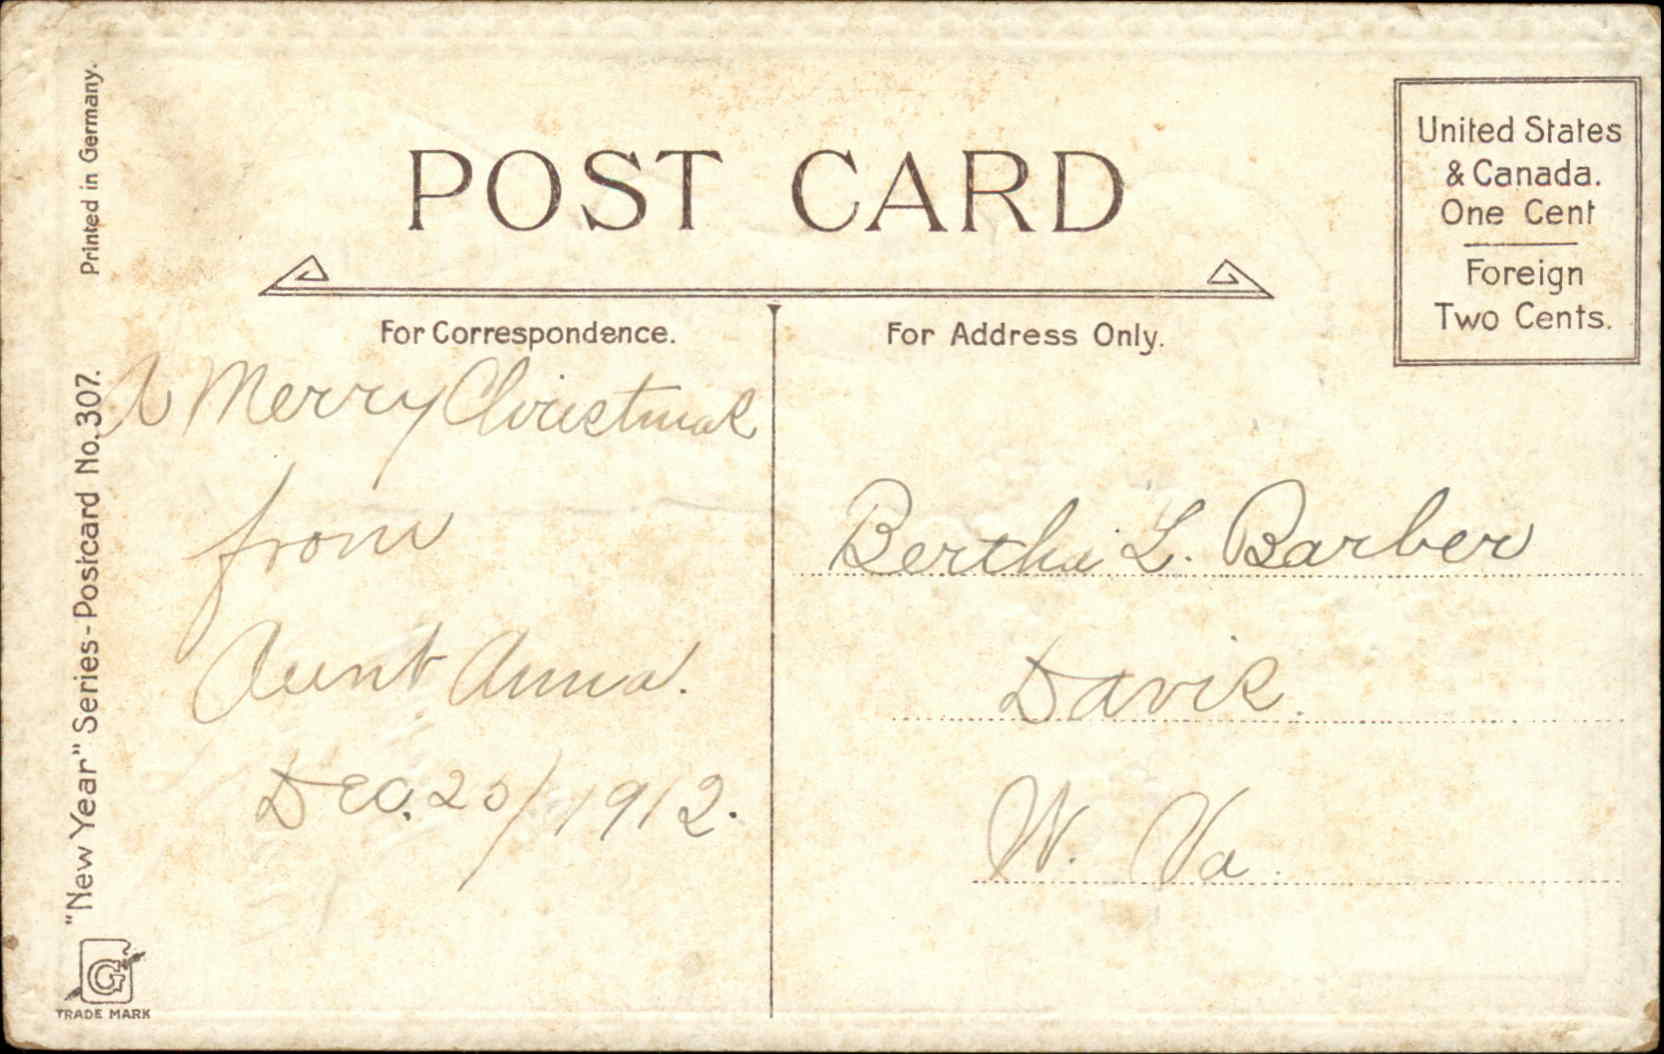 POST CARD
United States
& Canada.
One Cent
Foreign
Two Cents.
For Correspondence.
For Address Only.
A Merry Christmas
from
Aunt Anna.
Dec. 25/1912.
Bertha L. Barber
Davis.
W. Va.
Printed in Germany.
"New Year" Series - Postcard No. 307.
G
TRADE MARK